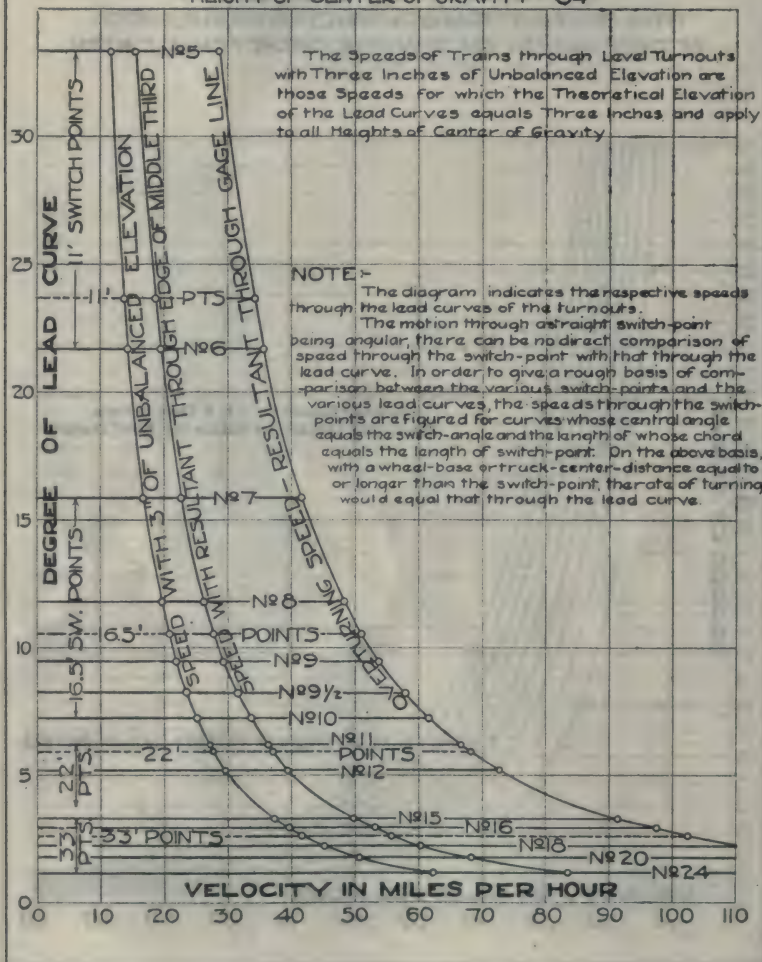 HEIGHT OF CENTER OF GRAVITY = 84"
The Speeds of Trains through Level Turnouts
with Three Inches of Unbalanced Elevation are
those Speeds for which the Theoretical Elevation
of the Lead Curves equals Three Inches and apply
to all Heights of Center of Gravity
NOTE:-
The diagram indicates the respective speeds
through the lead curves of the turnouts.
The motion through a straight switch-point
being angular, there can be no direct comparison of
speed through the switch-point with that through the
lead curve. In order to give a rough basis of com-
-parison between the various switch-points and the
various lead curves, the speeds through the switch-
points are figured for curves whose central angle
equals the switch-angle and the length of whose chord
equals the length of switch-point. On the above basis,
with a wheel-base or truck-center-distance equal to
or longer than the switch-point, the rate of turning
would equal that through the lead curve.
DEGREE OF LEAD CURVE
11' SWITCH POINTS
16.5' SW. POINTS
22' PTS
33' PTS
SPEED WITH 3" OF UNBALANCED ELEVATION
SPEED WITH RESULTANT THROUGH EDGE OF MIDDLE THIRD
OVERTURNING SPEED - RESULTANT THROUGH GAGE LINE
Nº5
30
25
11' PTS
Nº6
20
Nº7
15
Nº8
16.5' POINTS
10
Nº9
Nº9½
Nº10
Nº11
22' POINTS
Nº12
5
Nº15
Nº16
33' POINTS
Nº18
Nº20
Nº24
VELOCITY IN MILES PER HOUR
0
0 10 20 30 40 50 60 70 80 90 100 110